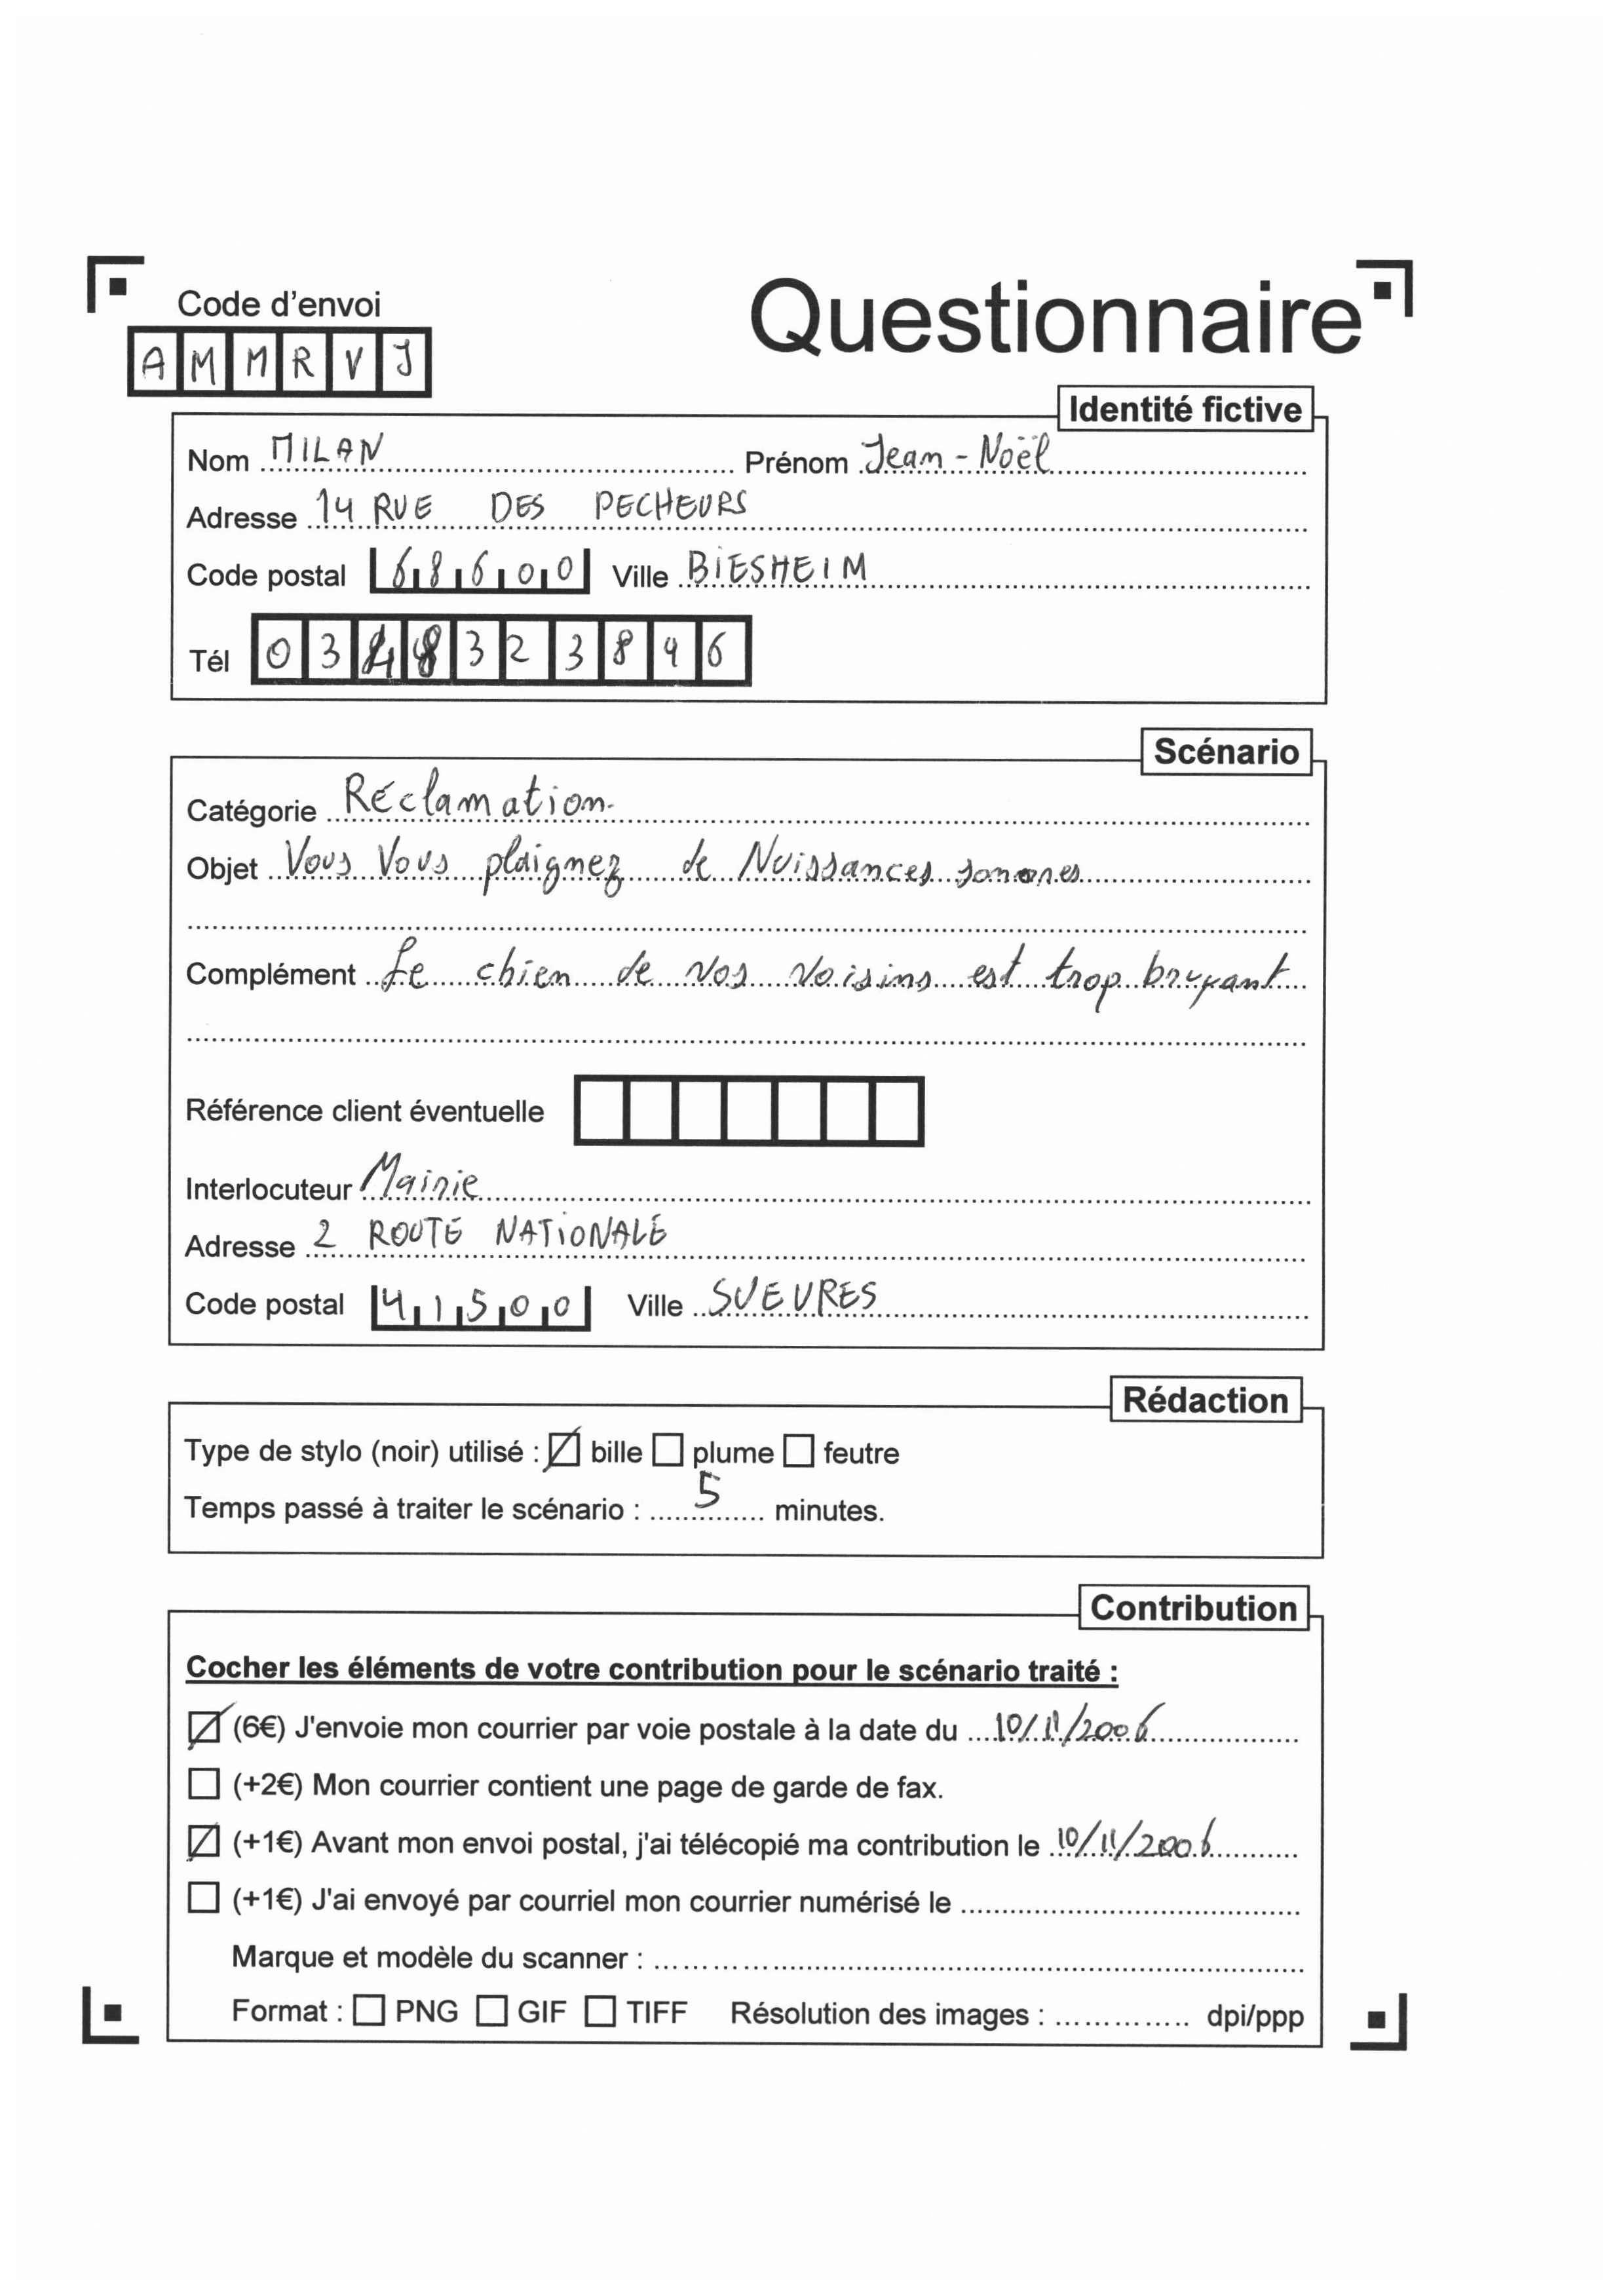 Code d'envoi
Questionnaire
A M M R V J
Identité fictive
Nom MILAN Prénom Jean-Noël
Adresse 14 RUE DES PECHEURS
Code postal 68600 Ville BIESHEIM
Tél 03 32 38 46
Scénario
Catégorie Réclamation.
Objet Vous Vous plaignez de Nuissances sonores
Complément Le chien de vos voisins est trop bruyant
Référence client éventuelle
Interlocuteur Mairie
Adresse 2 ROUTE NATIONALE
Code postal 41500 Ville SUEVRES
Rédaction
Type de stylo (noir) utilisé : bille plume feutre
Temps passé à traiter le scénario : 5 minutes.
Contribution
Cocher les éléments de votre contribution pour le scénario traité :
(6€) J'envoie mon courrier par voie postale à la date du 10/11/2006
(+2€) Mon courrier contient une page de garde de fax.
(+1€) Avant mon envoi postal, j'ai télécopié ma contribution le 10/11/2006
(+1€) J'ai envoyé par courriel mon courrier numérisé le
Marque et modèle du scanner :
Format : PNG GIF TIFF Résolution des images : dpi/ppp